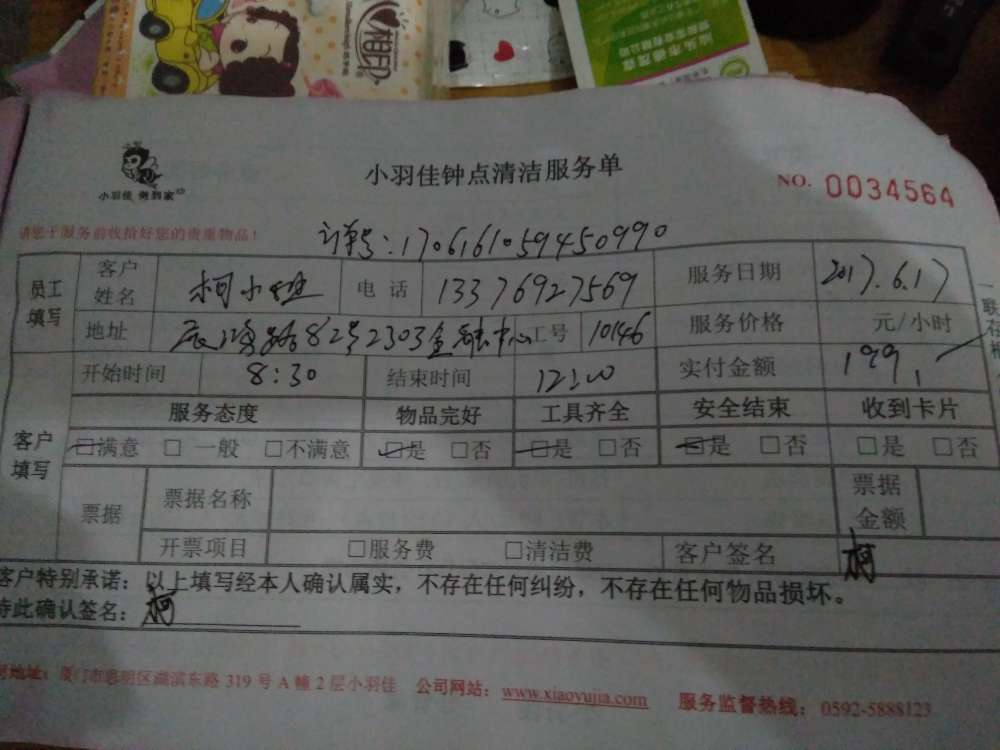 心相印
汕头市
有限公司
小羽佳钟点清洁服务单
NO. 0034564
小羽佳 做到家
请您于服务前收拾好您的贵重物品！
订单号：170616105945099０
员工填写 客户姓名 柯小姐 电话 13376927569 服务日期 2017.6.17
地址 82号2303金融中心 工号 10146 服务价格 元/小时
开始时间 8:30 结束时间 12:00 实付金额 199
客户填写 服务态度 物品完好 工具齐全 安全结束 收到卡片
□满意 □一般 □不满意 □是 □否 □是 □否 □是 □否 □是 □否
票据 票据名称 票据金额
开票项目 □服务费 □清洁费 客户签名 柯
客户特别承诺：以上填写经本人确认属实，不存在任何纠纷，不存在任何物品损坏。
特此确认签名：柯
地址：厦门市思明区湖滨东路 319 号 A 幢 2 层小羽佳 公司网站：www.xiaoyujia.com 服务监督热线：0592-5888123